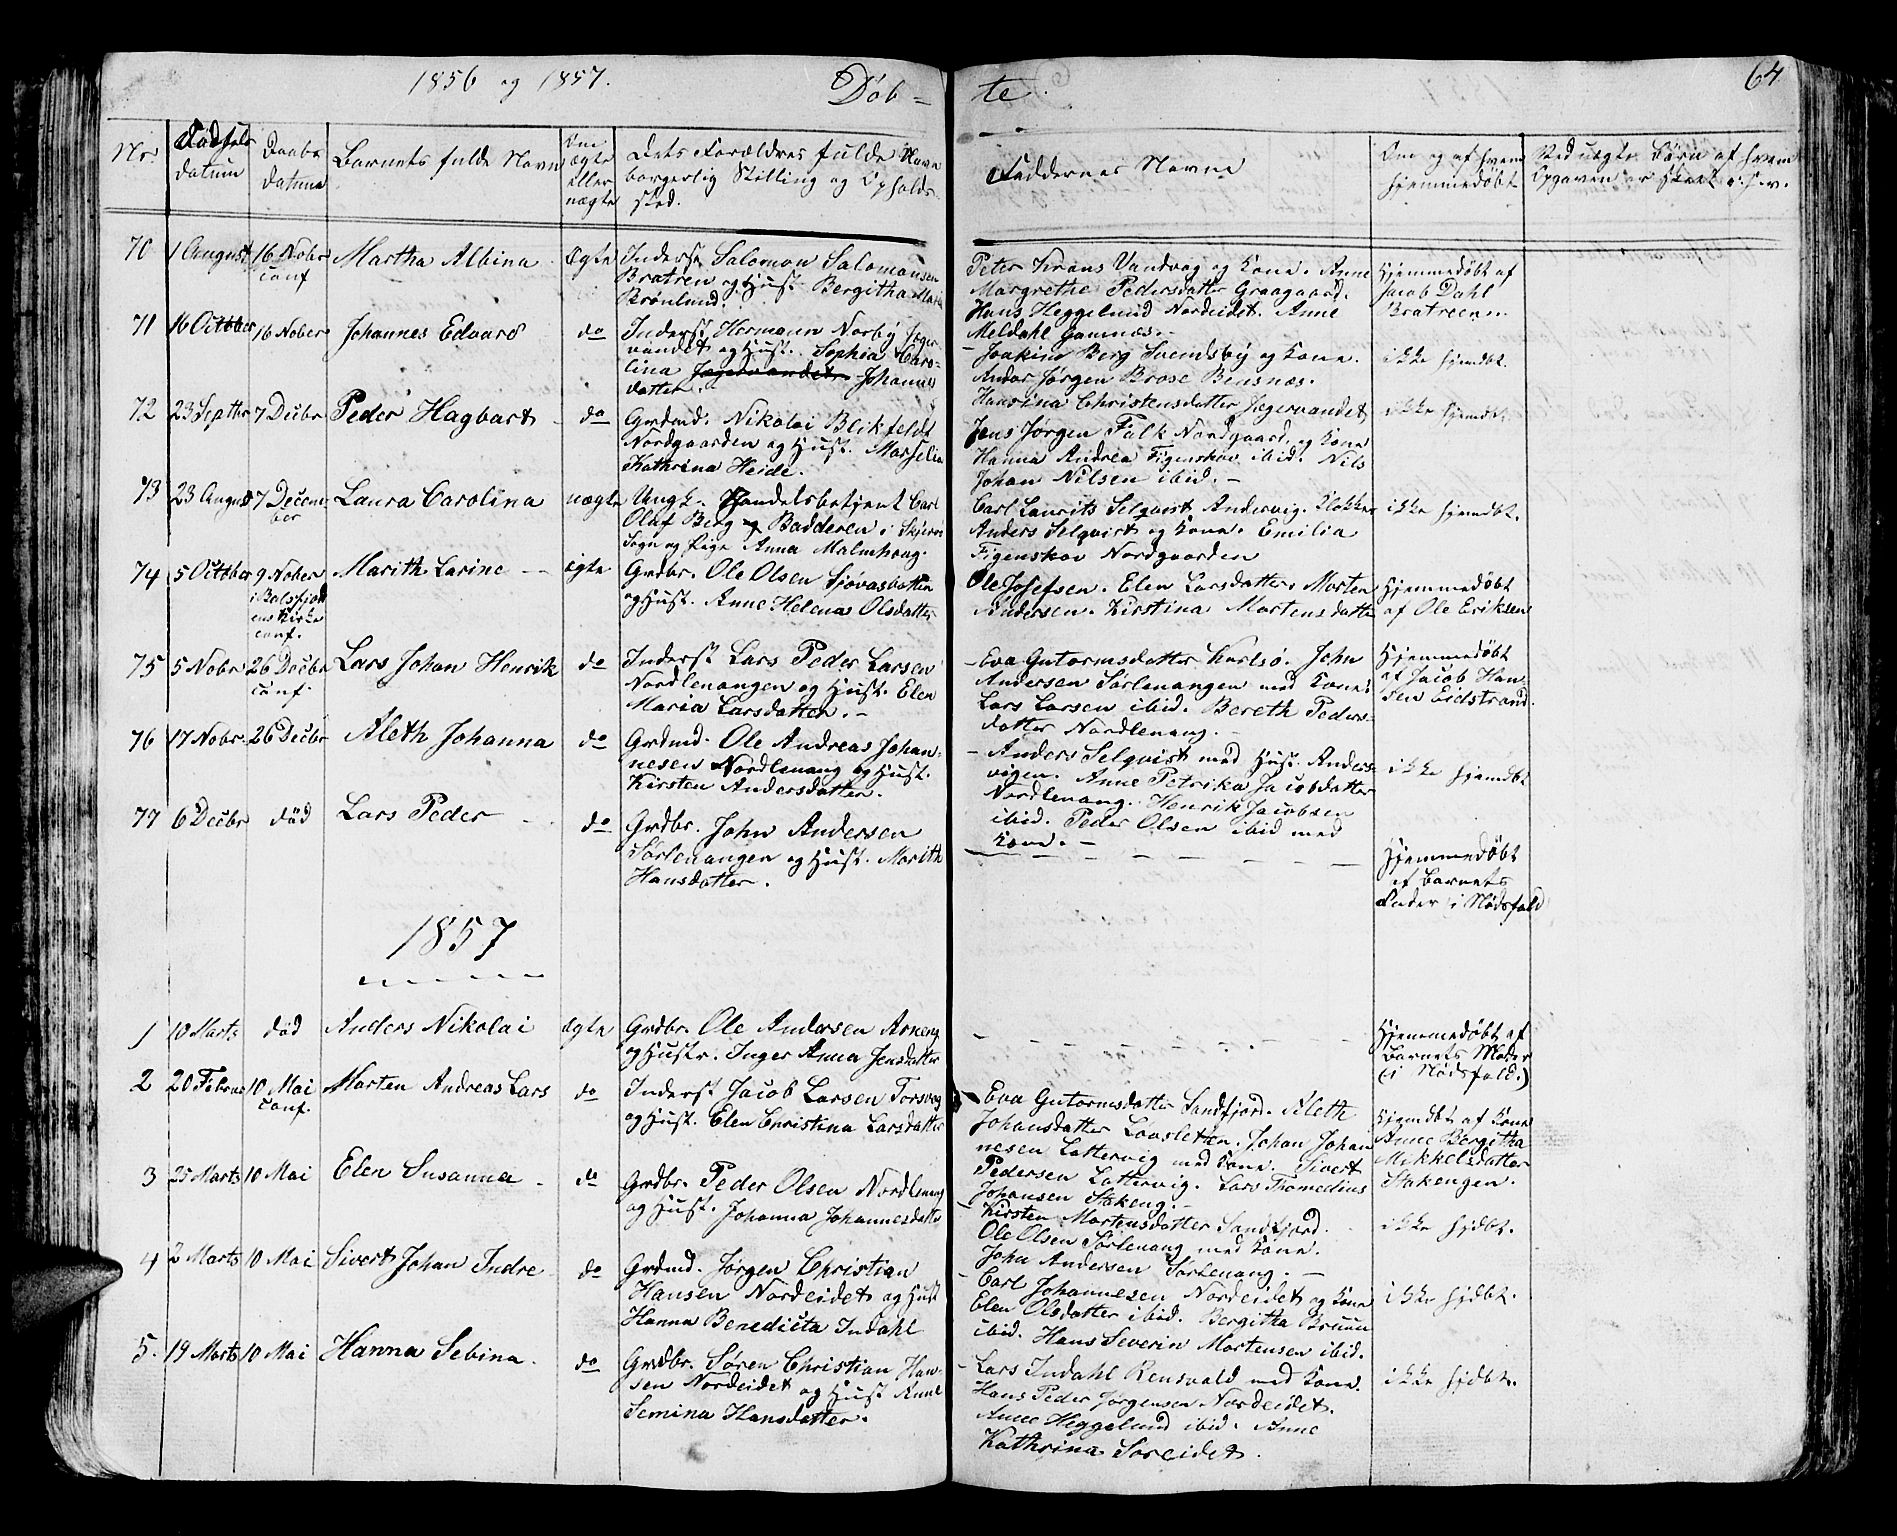 1856 og 1857. Døb = te. 64.
No Fødsels datum Daabs datum Barnets fulde Navn Om ægte eller uægte Dets Forældres fulde Navn borgerlig Stilling og Opholds sted.
Faddernes Navne Om og af hvem hjemmedøbt Ved uægte Børn af hvem Opgaven er skeet o.s.v.
70 1 August 16 Nobr conf Martha Albina Ægte Inderst Salomon Salomonsen
Bratren og Hust. Bergitha Maria
Brönlund.
Peter Krans Vandvag og Kone. Anne
Margrethe Pedersdatter Graagaard.
Hans Heggelund Nordeidet. Anne
Meldahl Gamnæs.-
Hjemmedøbt af
Jacob Dahl
Bratreen.
71 16 October 16 Nober Johannes Edvard do Inderst Hermann Norby Jæger
vandet og Hust. Sophia Caro-
lina Jægervandet Johannes
datter.
- Joakim Berg Svendsby og Kone.
Andor Jørgen Brose Bensnæs.
Hansina Christensdatter Jægervandet
ikke hjemdbt.
72 23 Septbr 7 Decbr Peder Hagbart do Grdmd. Nikolai Blikfeldt
Nordgaarden og Hust. Marselia
Kathrina Heide.
Jens Jørgen Falk Nordgaard og Kone
Hanna Andrea Figenskov ibid. Nils
Johan Nilsen ibid.-
ikke hjemdbt.
73 23 August 7 Decem-
ber Laura Carolina uægte Ungk. Handelsbetjent Carl
Oluf Berg og Badderen i Skjervø
Sogn og Pige Anna Malmhaug.
Carl Laurits Selqvist Andervig. Klokker
Anders Selqvist og Kone. Emilia
Figenskov Nordgaarden
ikke hjemdbt.
74 5 October 9 Nober
i Balsfjord
ens Kirke
conf. Marith Larine ægte Grdbr. Ole Olsen Sjøvasbotten
og Hust. Anne Helena Olsdatter
Ole Josefsen. Elen Larsdatter. Morten
Andersen. Kirstina Mortensdatter
Hjemmedøbt
af Ole Eriksen
75 5 Nobr 26 Decbr
conf. Lars Johan Henrik do Inderst Lars Peder Larsen
Nordlenangen og Hust. Elen
Maria Larsdatter.-
- Eva Gutormsdatter Karlsö. John
Andersen Sörlenangen med Kone.
Lars Larsen ibid. Bereth Peders-
datter Nordlenang.-
Hjemmedøbt
af Jacob Han-
sen Eidstrand.
76 17 Nobr. 26 Decbr Aleth Johanna do Grdmd. Ole Andreas Johan-
nesen Nordlenang og Hust.
Kirsten Andersdatter.
- Anders Selqvist med Hust. Anders-
vigen. Anne Petrika Jacobsdatter
Nordlenang. Henrik Jacobsen
ibid. Peder Olsen ibid med
Kone.-
ikke hjemdbt
77 6 Decbr død Lars Peder do Grdbr. John Andersen
Sörlenangen og Hust. Marith
Hansdatter.
Hjemmedøbt
af Barnets
Fader i Nødsfald
1857
1 10 Marts død Anders Nikolai ægte Grdbr. Ole Andersen
og Hustr. Inger Anna Jensdatter
Hjemmedøbt af
Barnets Moder
(i Nødsfald.)
2 20 Februar 10 Mai
conf. Morten Andreas Lars do Inderst Jacob Larsen Torsvag
og Hust. Elen Christina Larsdatter
- Eva Gutormsdatter Sandfjord. Aleth
Johansdatter Lövsletten. Johan Johan
nesen Lattervig med Kone. Sivert
Pedersen Lattervig. Lars Thomedius
Johansen Stakeng.-
Hjemdbt af Kone
Anne Bergitha
Mikkelsdatter
Stakengen.
3 25 Marts 10 Mai Elen Susanna do Grdbr. Peder Olsen Nordlenang
og Hust. Johanna Johannesdatter
- Kirsten Mortensdatter Sandfjord.
Ole Olsen Sörlenang med Kone.
John Andersen Sörlenang.-
ikke hjdbt.
4 2 Marts 10 Mai Sivert Johan Indre do Grdmd. Jørgen Christian
Hansen Nordeidet og Hust
Hanna Benedicta Indahl
- Carl Johannesen Nordeidet og Kone
Elen Olsdatter ibid. Bergitha Bruun
ibid. Hans Severin Mortensen ibid.
ikke hjdbt.
5. 19 Marts 10 Mai Hanna Sebina. do Grdbr. Søren Christian Han-
sen Nordeidet og Hust Anne
Semina Hansdatter.
- Lars Indahl Rensvold med Kone.
Hans Peder Jørgensen Nordeidet.
Anne Heggelund ibid. Anne
Kathrina Soreidet.
ikke hjdbt.